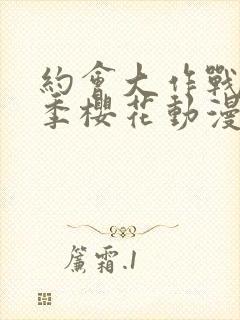 約會大作戰
季櫻花動漫
簾霜.1